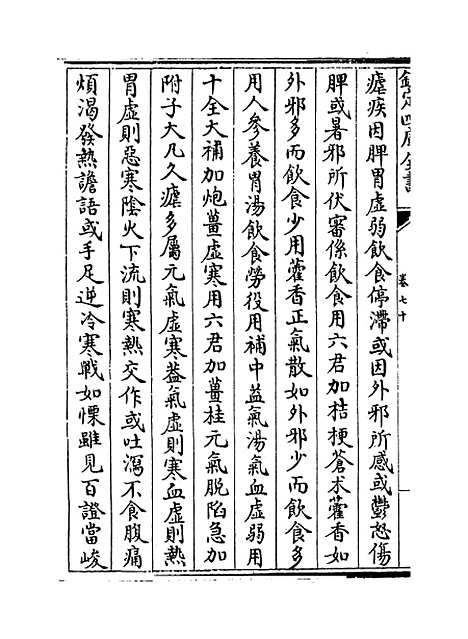 欽定四庫全書
卷七十
瘧疾因脾胃虛弱飲食停滯或因外邪所感或鬱怒傷
脾或暑邪所伏審係飲食用六君加桔梗蒼术藿香如
外邪多而飲食少用藿香正氣散如外邪少而飲食多
用人參養胃湯飲食勞役用補中益氣湯氣血虛弱用
十全大補加炮薑虛寒用六君加薑桂元氣脫陷急加
附子大凡久瘧多屬元氣虛寒葢氣虛則寒血虛則熱
胃虛則惡寒陰火下流則寒熱交作或吐瀉不食腹痛
煩渴發熱譫語或手足逆冷寒戰如慄雖見百證當峻